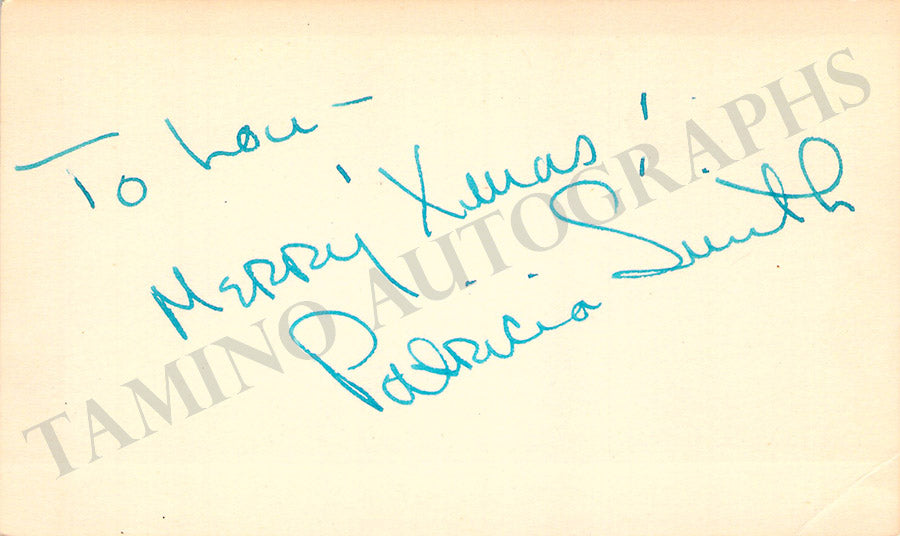 To Lou —
Merry Xmas!
Patricia Smith
TAMINO AUTOGRAPHS